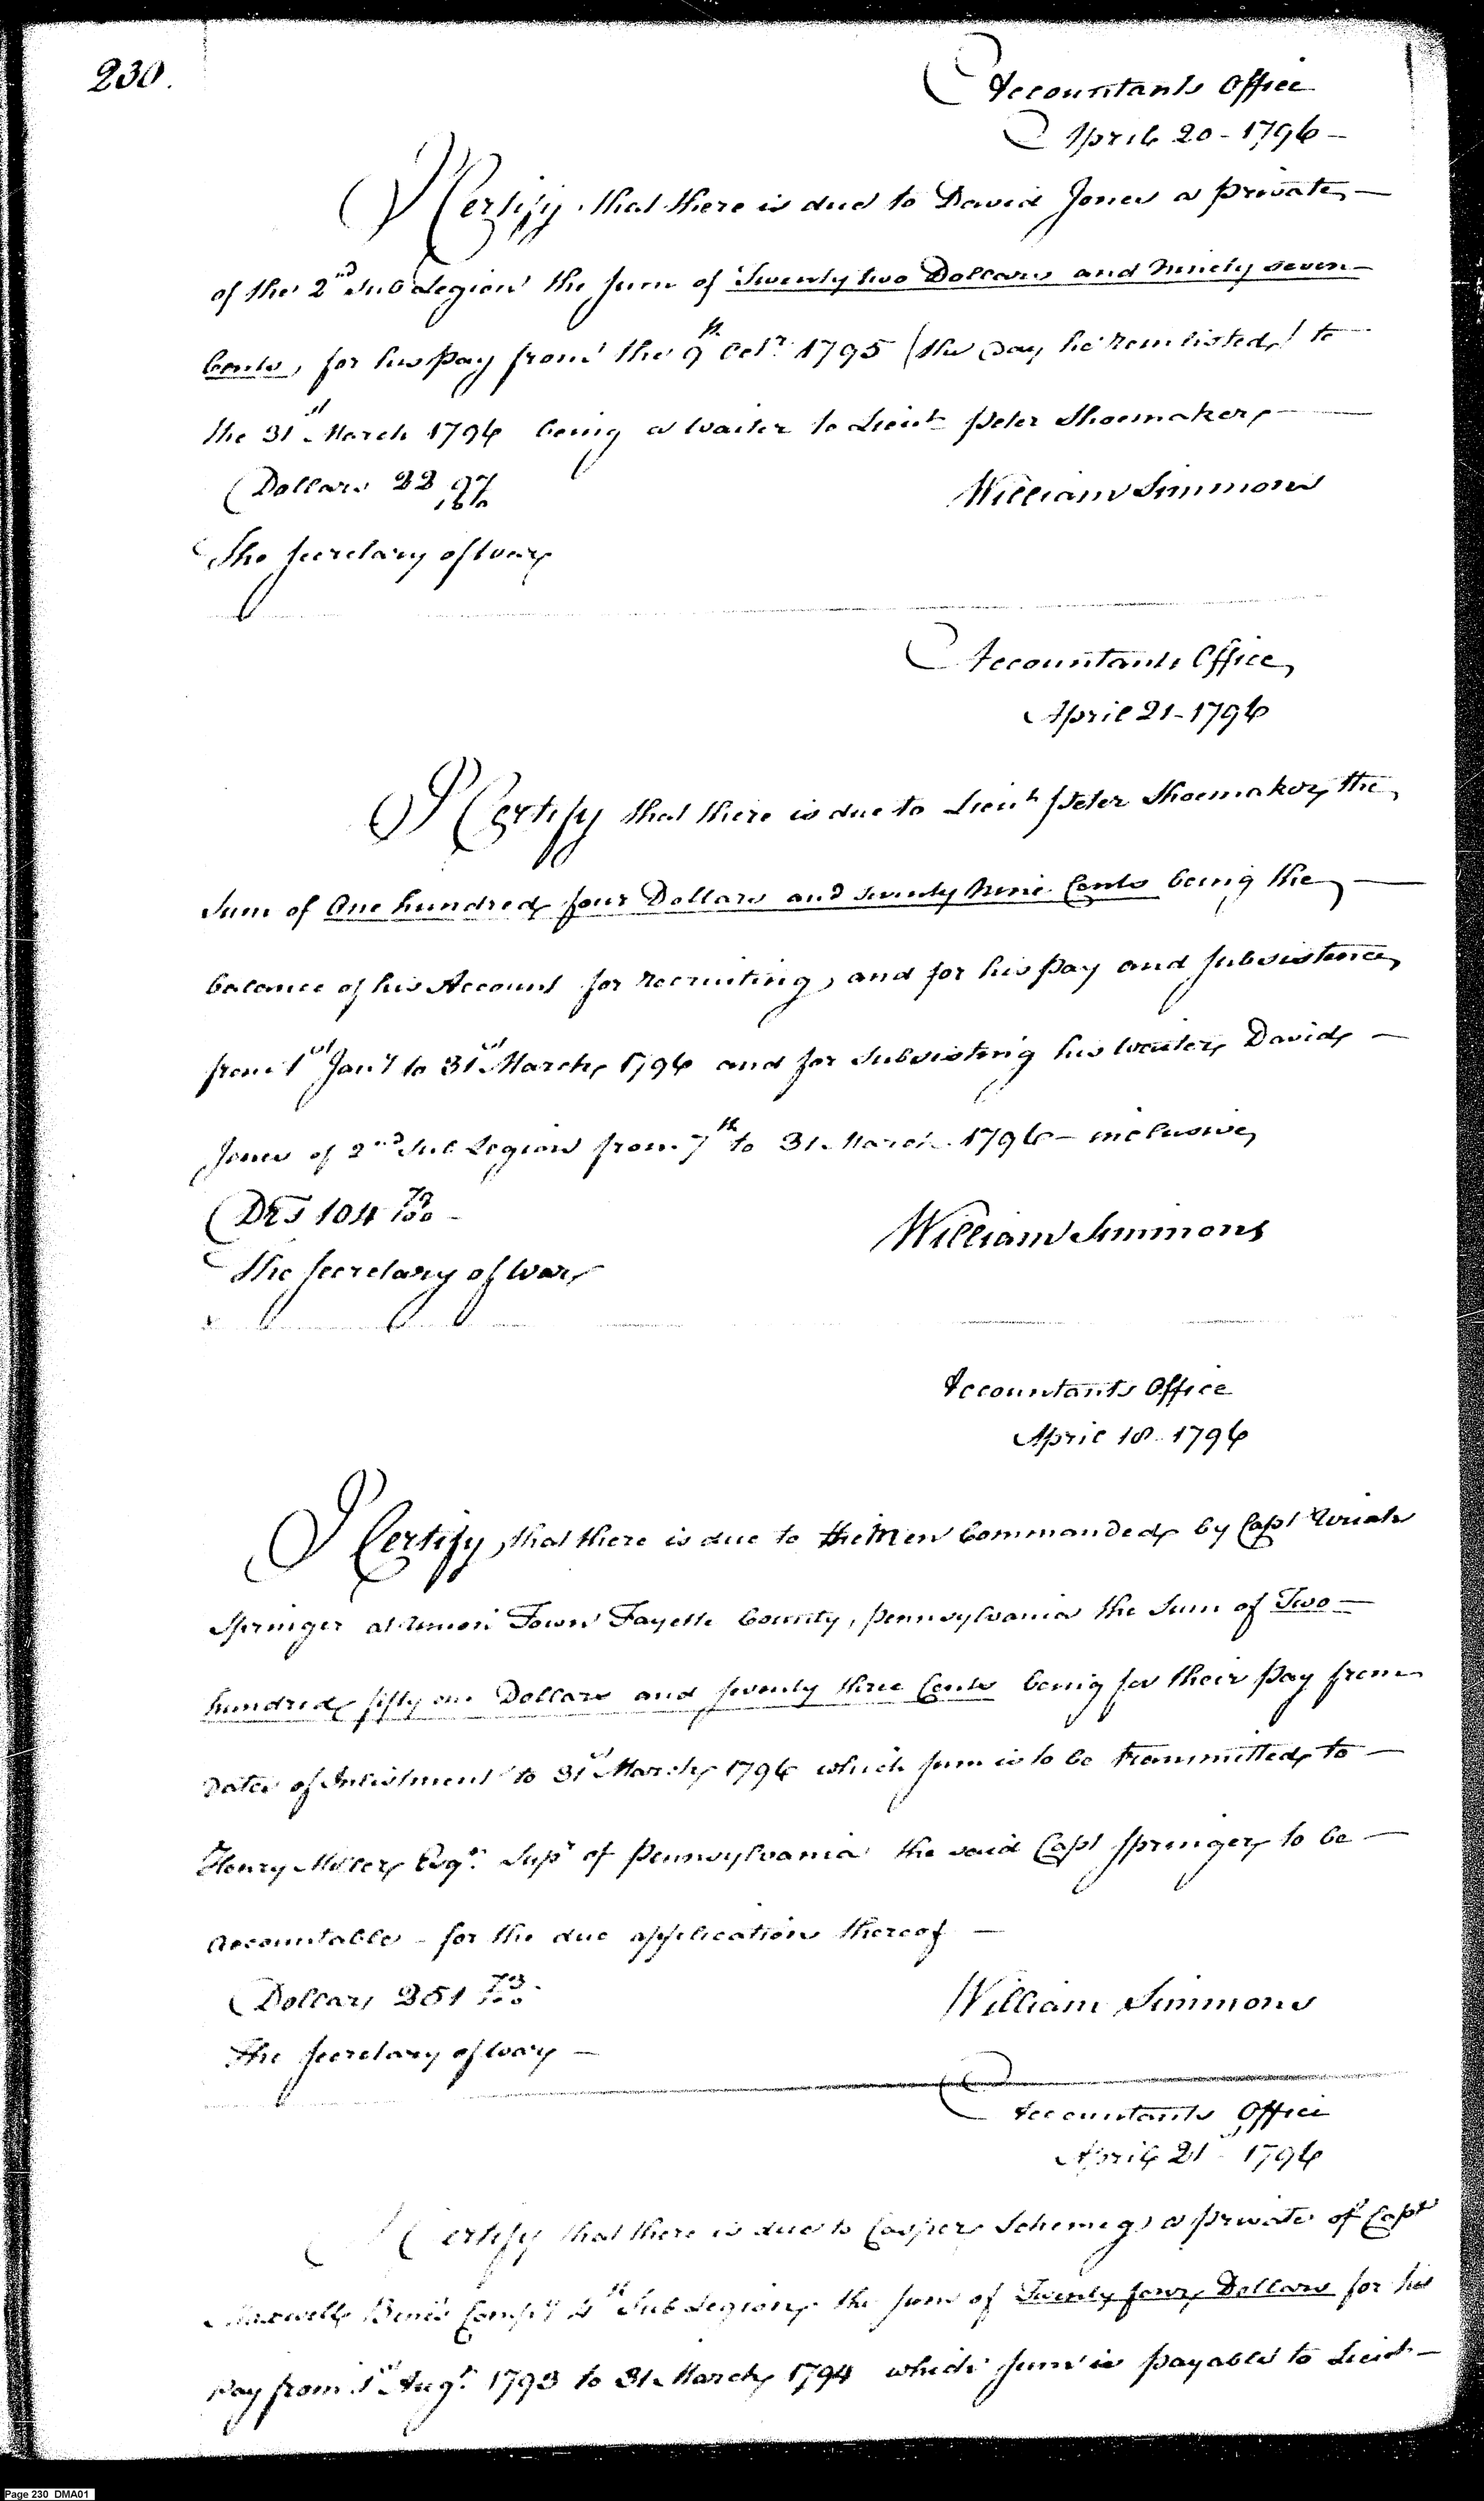 230.
Accountants Office
April 20 - 1796 -
I Certify that there is due to David Jones a private
of the 2nd Sub Legion the sum of Twenty two Dollars and ninety seven
Cents, for his pay from the 9th Octr. 1795 (the Day he reinlisted) to
the 31st March 1796 being a waiter to Lieut Peter Shoemaker
Dollars 22 97/100
William Simmons
The Secretary of War
Accountants Office
April 21 - 1796
I Certify that there is due to Lieut Peter Shoemaker the
Sum of One hundred four Dollars and seventy nine Cents being the
balance of his Account for recruiting, and for his pay and subsistence
from 1st Jany to 31st March 1796 and for subsisting his waiter David
Jones of 2nd Sub Legion from 7th to 31 March 1796 - inclusive
Drs 104 79/100 -
William Simmons
The Secretary of War
Accountants Office
April 18 - 1796
I Certify, that there is due to the Men Commanded by Capt Uriah
Springer at Union Town Fayette County, Pennsylvania the Sum of Two
hundred fifty one Dollars and seventy three Cents being for their pay from
Dates of Inlistment to 31st March 1796 which sum is to be transmitted to
Henry Miller Esqr. Supr of Pennsylvania the said Capt Springer to be
accountable - for the due application thereof
Dollars 251 73/100
William Simmons
The Secretary of War -
Accountants Office
April 21st 1796
I Certify that there is due to Casper a private of Capt
Maxwell Bines Compy 4th Sub Legion the sum of Twenty four Dollars for his
pay from 1st Augt. 1793 to 31 March 1794 which sum is payable to Lieut
Page 230 DMA01